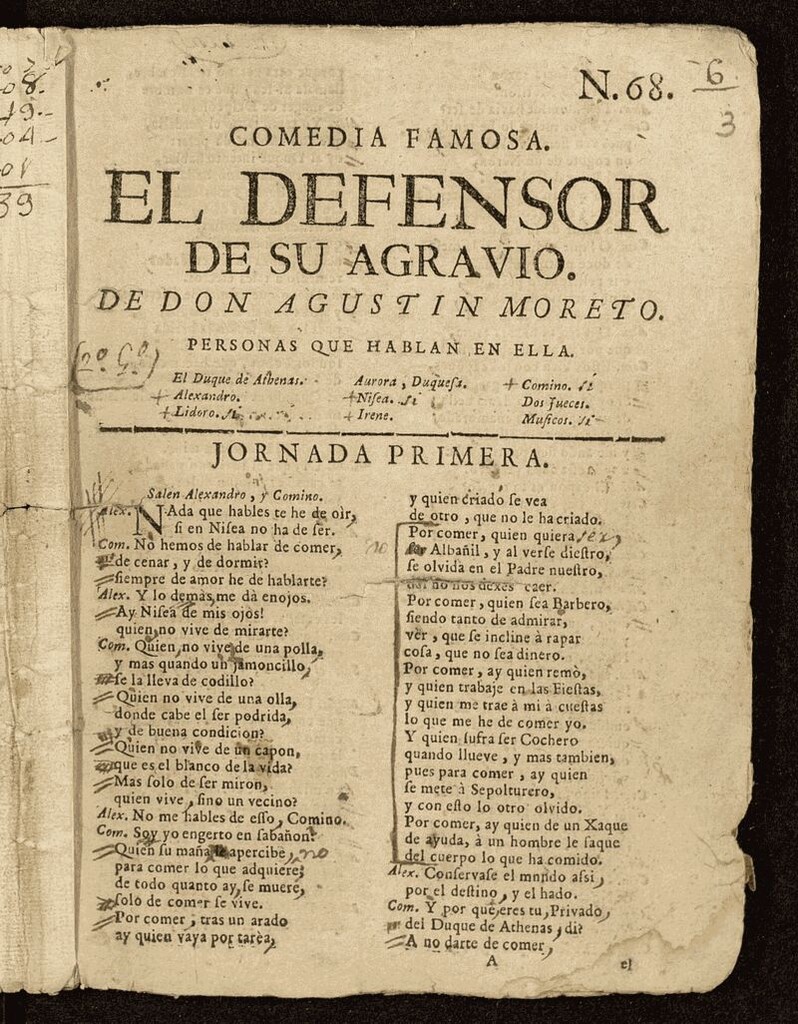 N. 68.
6
3
08.
19.
04
01
39
COMEDIA FAMOSA.
EL DEFENSOR
DE SU AGRAVIO.
DE DON AGUSTIN MORETO.
PERSONAS QUE HABLAN EN ELLA.
El Duque de Athenas.
+ Alexandro.
+ Lidoro. si
Aurora, Duquesa.
+ Niſea. si
+ Irene.
+ Comino. si
Dos Jueces.
Muſicos. si
JORNADA PRIMERA.
Salen Alexandro, y Comino.
Alex. NAda que hables te he de oir,
ſi en Niſea no ha de ſer.
Com. No hemos de hablar de comer,
de cenar, y de dormir?
ſiempre de amor he de hablarte?
Alex. Y lo demàs, me dà enojos.
Ay Niſea de mis ojos!
quien no vive de mirarte?
Com. Quien no vive de una polla,
y mas quando un jamoncillo,
ſe la lleva de codillo?
Quien no vive de una olla,
donde cabe el ſer podrida,
y de buena condicion?
Quien no vive de un capon,
que es el blanco de la vida?
Mas ſolo de ſer miron,
quien vive, ſino un vecino?
Alex. No me hables de eſſo, Comino.
Com. Soy yo engerto en ſabañon?
Quien ſu maña apercibe, no
para comer lo que adquiere;
de todo quanto ay, ſe muere,
ſolo de comer ſe vive.
Por comer, tras un arado
ay quien vaya por tarea,
y quien criado ſe vea
de otro, que no le ha criado.
Por comer, quien quiera ser
Albañil, y al verſe dieſtro,
ſe olvida en el Padre nueſtro,
del no nos dexes caer.
Por comer, quien ſea Barbero,
ſiendo tanto de admirar,
vèr, que ſe incline à rapar
coſa, que no ſea dinero.
Por comer, ay quien remò,
y quien trabaje en las Fieſtas,
y quien me trae à mi à cueſtas
lo que me he de comer yo.
Y quien ſufra ſer Cochero
quando llueve, y mas tambien,
pues para comer, ay quien
ſe mete à Sepolturero,
y con eſto lo otro olvido.
Por comer, ay quien de un Xaque
de ayuda, à un hombre le ſaque
del cuerpo lo que ha comido.
Alex. Conſervaſe el mundo aſsi,
por el deſtino, y el hado.
Com. Y por què eres tu, Privado,
del Duque de Athenas, di?
A no darte de comer,
A
el